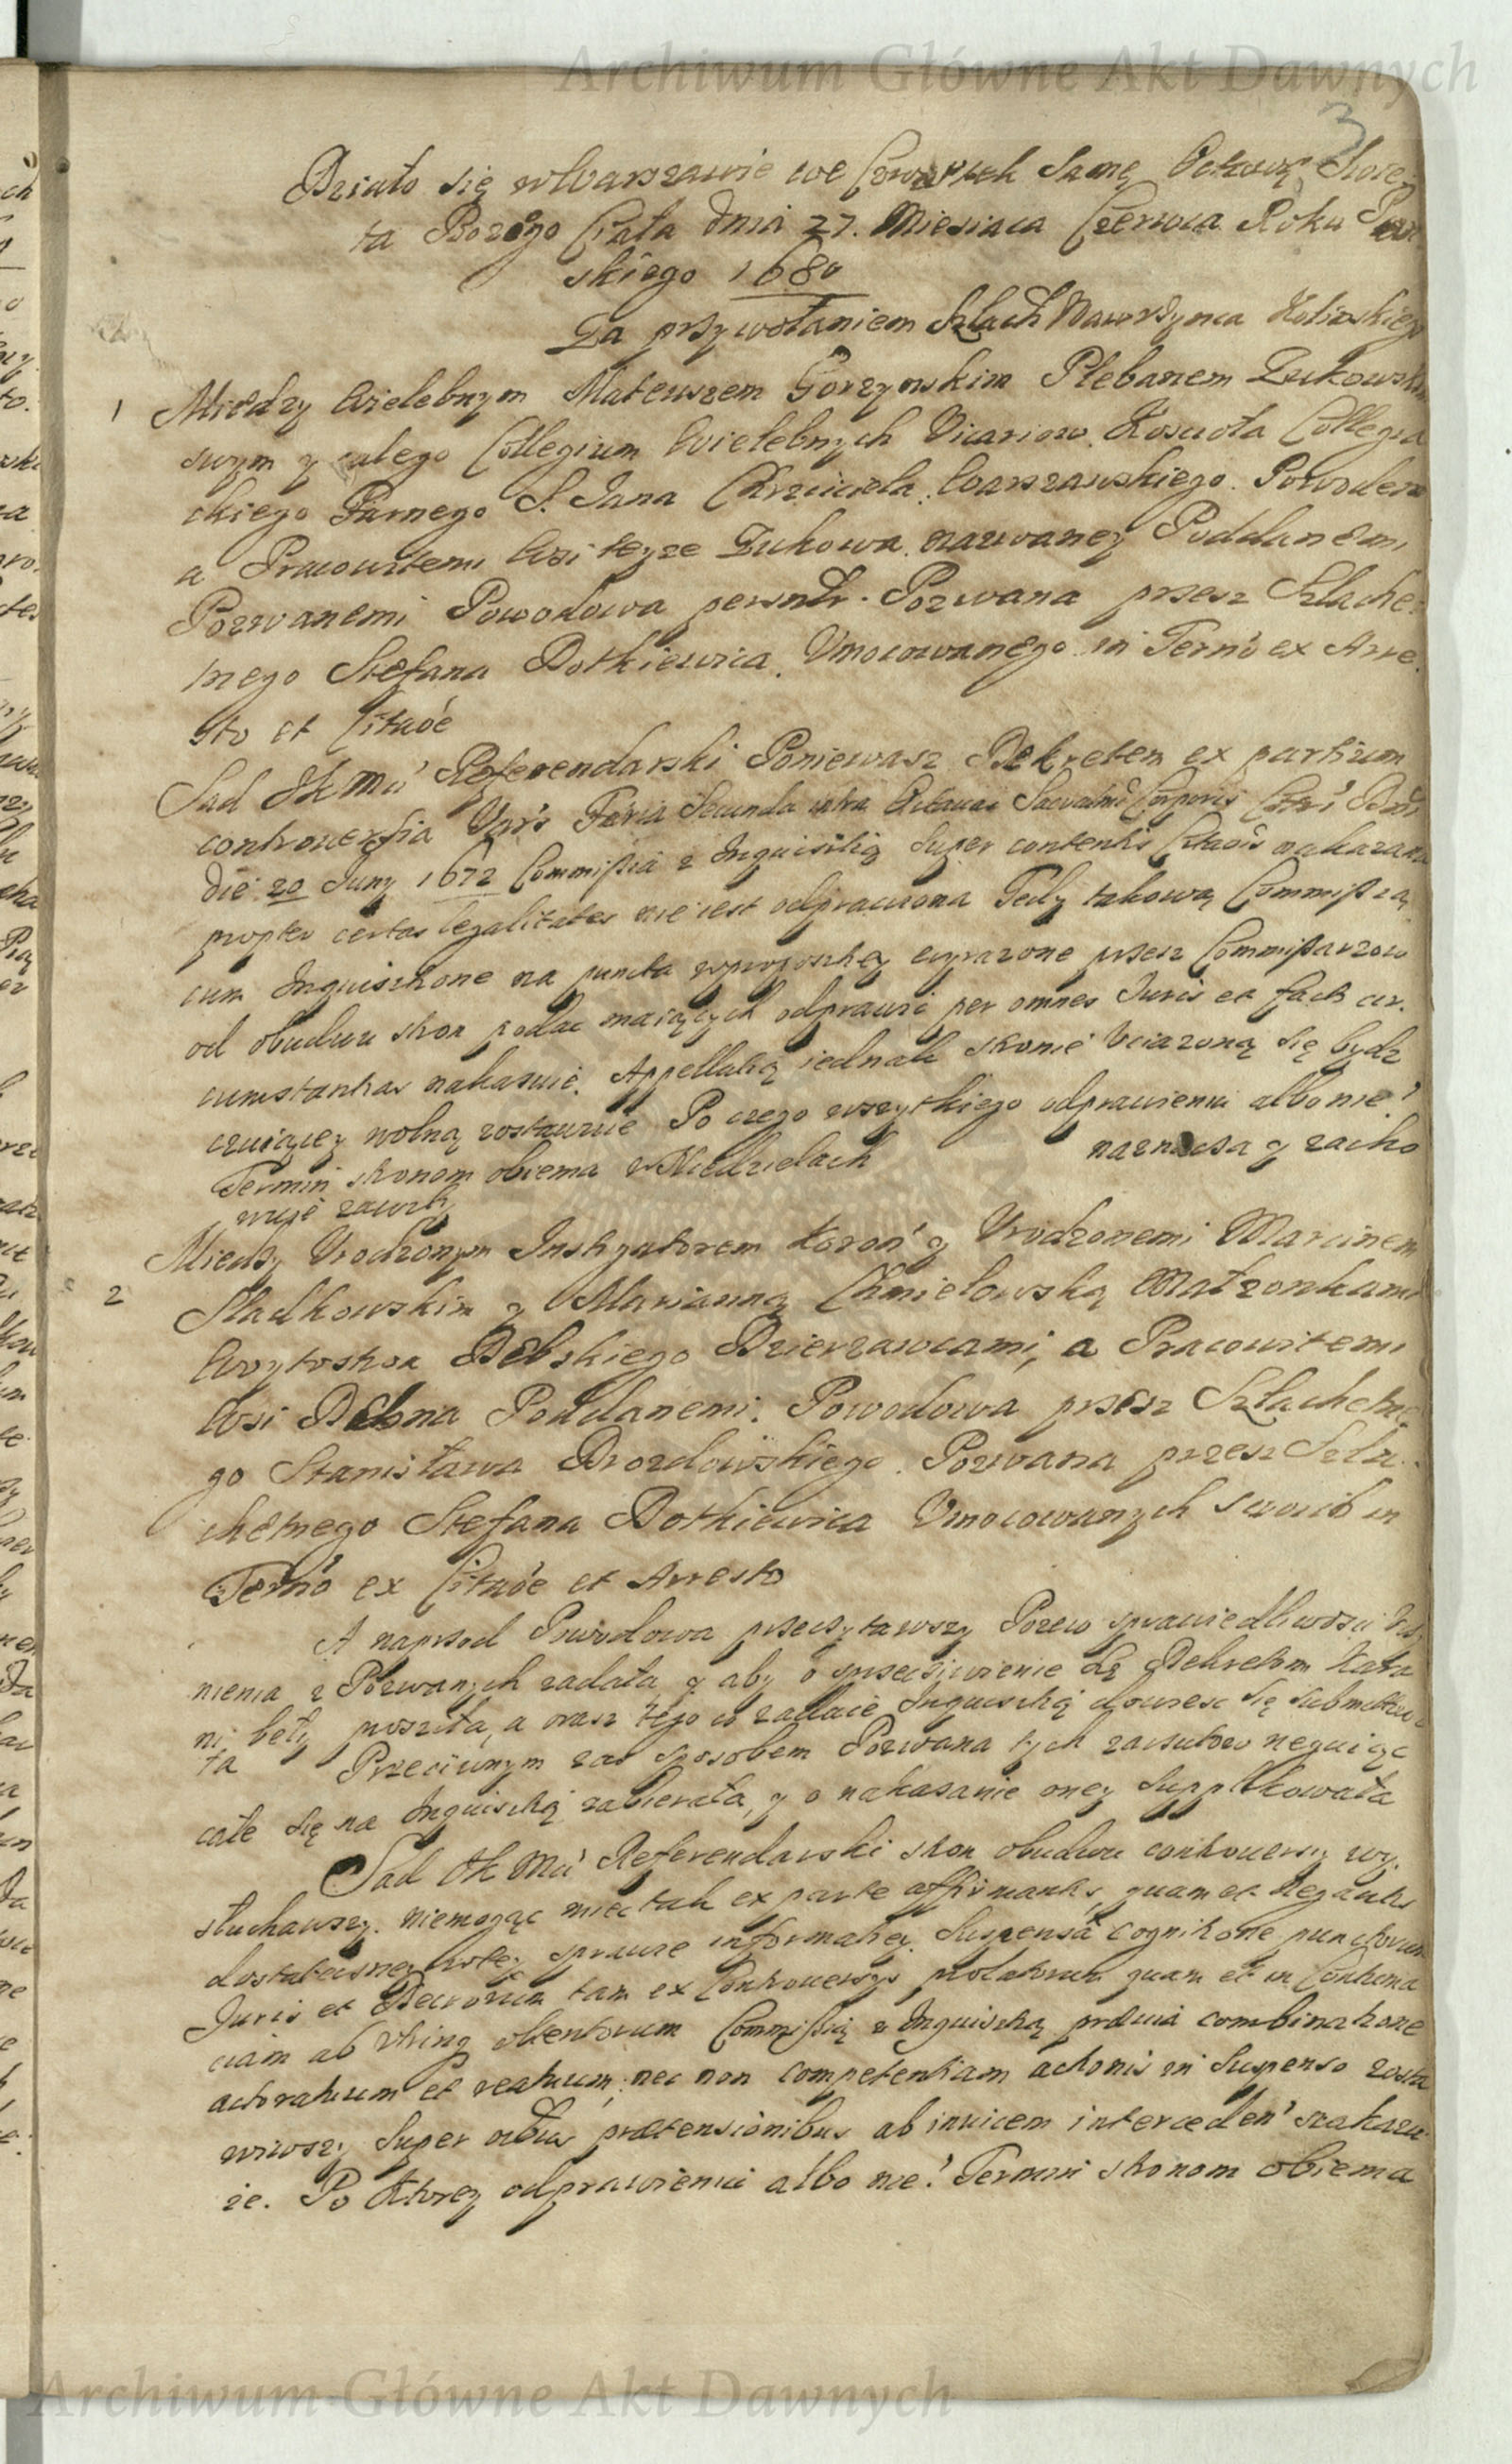 Archiwum Główne Akt Dawnych
3
Działo się w Warszawie we Czwartek Samą Octawę Swię
ta Bożego Ciała dnia 27. Miesiaca Czerwca Roku Pan
skiego 1680
Za przywołaniem Szlach Wawrzynca
1 Miedzy Wielebnym Mateuszem Gorzynskim Plebanem Zukowskim
swym y całego Collegium Wielebnych Vicariow Koscioła Collegia
ckiego Farnego S. Jana Chrzciciela Warszawskiego. Powodem
a Pracowitemi Wsi teyze Zukowa nazwaney Poddanemi
Pozwanemi Powodowa personlr. Pozwana przesz Szlache
tnego Stefana Botkiewica Vmocowanego in Termo ex Arre
sto et Citaoe
Sad JK Mci Referendarski Poniewasz Dekretem ex partium
controuersia Feria Secunda intra Octauas Corporis
die 20 Juny 1672 Commissia z Inquisitią Super contentis nakazana
propter certas legalitates nie iest odprawiona Tedy takową Commissią
cum Inquisitione na puncta wyrazone przesz Commissarzow
od obudwu stron podac maiących odprawić per omnes Juris et facti cir.
cumstantias nakazuie. Appellatią iednak stronie Vciazoną się bydz
czuiącey wolną zostawuie Po czego wszytkiego odprawieniu albo nie
Termin stronom obiema w Niedzielach naznacza y zacho
wuie
2 Miedzy Vrodzonym Instygatorem Koron y Vrodzonemi Marcinem
Sladkowskim y Marianną Chmielowską Małzonkami
Woytostwa Debskiego Dzierzawcami, a Pracowitemi
Wsi Debna Poddanemi. Powodowa przesz Szlachetne
go Stanisława Drozdowskiego. Pozwana przesz Szla
chetnego Stefana Botkiewica Vmocowanych swoich in
Termo ex Citaoe et Arresto
A naprzod Powodowa przeczytawszy Pozew sprawiedliwosci
nienia z Pozwanych ządała y aby o sprzeciwienie się Dekretom kara
ni beli prosiła, a oraz tego co zadaie Inquisitią dowiesc się submitto
ta Przeciwnym zas sposobem Pozwana tych zarzutow neguiąc
cale się na Inquisitią zabierała, y o nakazanie oney Supplikowała
Sad JK Mci Referendarski stron obudwu controuersiy wy.
słuchawszy. niemogąc miec tak ex parte affirmantis, quam et negantis
dostateczney w tey sprawie informatiey. Suspensa cognitione punctorum
Juris et Decretorum tam ex Controuersys prolatorum quam et in Contuma
ciam ab vtrinq obtentorum Commissią z Inquisitią praeuia combinatione
actoratuum et reatuum, nec non competentiam actionis in Suspenso zosta
wiwszy Super praetensionibus ab inuicem interceden nakazu
ie. Po ktorey odprawieniu albo nie. Termin stronom obiema
Archiwum Główne Akt Dawnych